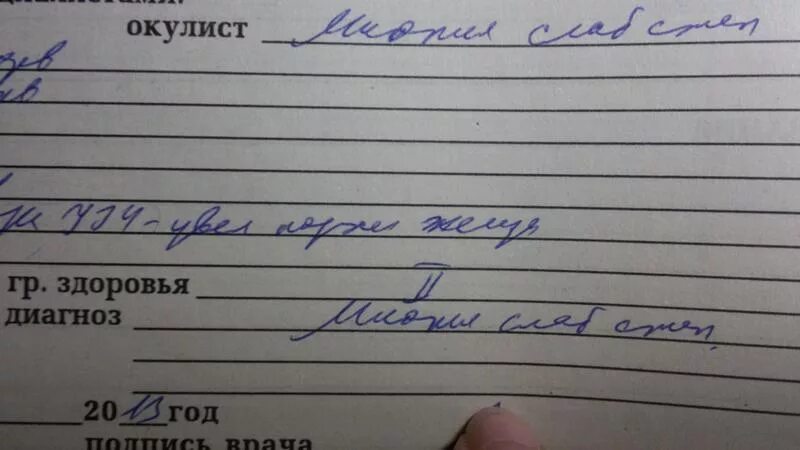 окулист Миопия слаб степ
УЗИ - увел поджел желуд
гр. здоровья II
диагноз Миопия слаб степ.
2013 год
подпись врача